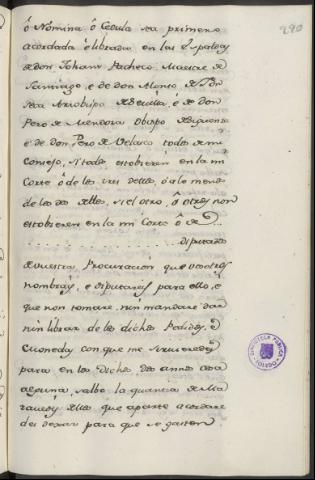 290
ô Nomina ô Cedula sea primero
acordada ê librada en las Espaldas
de don Johan Pacheco, Maestre de
Santiago, e de don Alonso de
Arzobispo de Sevilla, e de don
Pero de Mendoza Obispo de Siguenza
e de don Pero de Velasco todos de mi
Consejo, si todos estobieren en la mi
Corte ô de los tres dellos, ô a lo menos
de los dos dellos, si el otro, ô otros non
estobieren en la mi Corte ô de
diputados
de vuestra Procuracion que vosotros
nombrays, e diputareys para ello, e
que non tomaré, nin mandaré dar
nin librar de los dichos Pedidos, e
Monedas con que me servieredes
para en los dichos dos annos cosa
alguna, salbo la quantia de Ma
ravedis dellos que aparte acordare
des dexar para que se gasten
BIBLIOTECA PUBLICA
TOLEDO